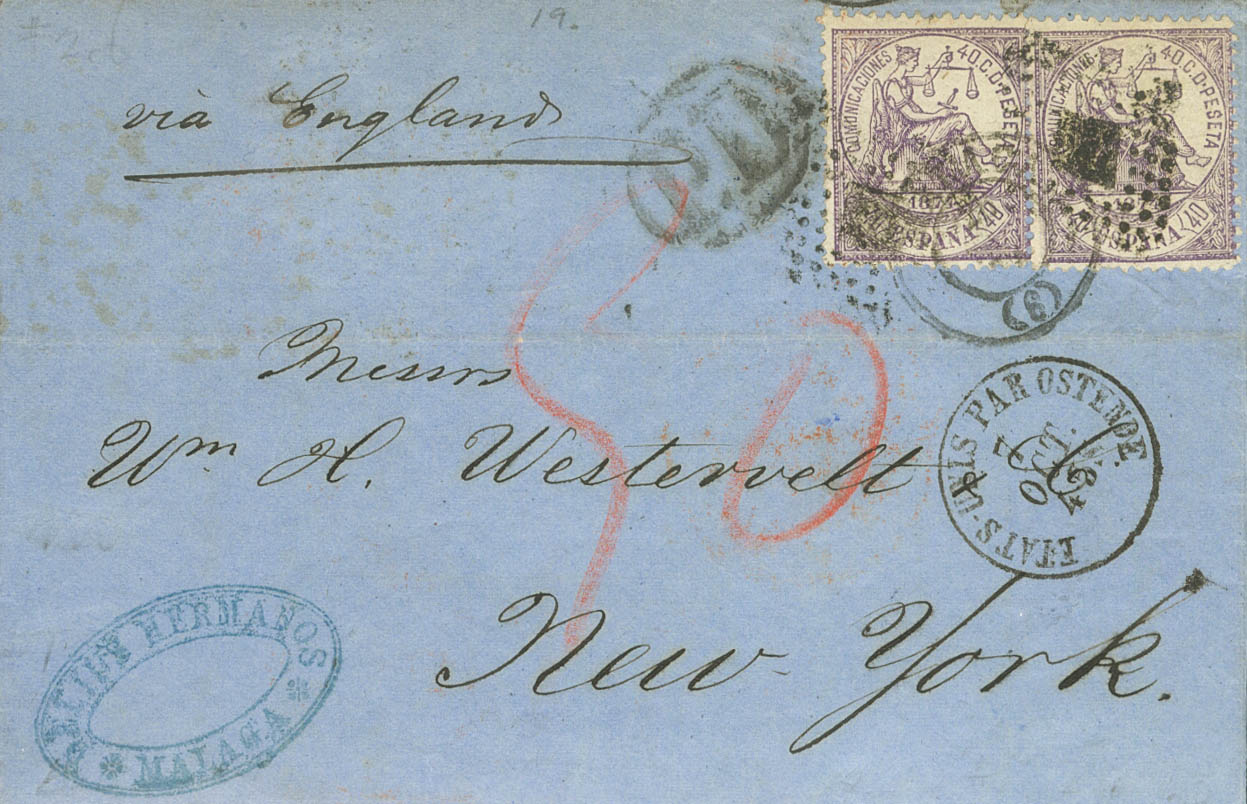 19.
via England
P.D.
COMUNICACIONES 40 C. D. PESETA
1874
40 ESPAÑA 40
COMUNICACIONES 40 C. D. PESETA
ESPAÑA 40
(6)
50
Messrs
Wm H. Westervelt
New York.
ETATS-UNIS PAR OSTENDE
HERMANOS
MALAGA